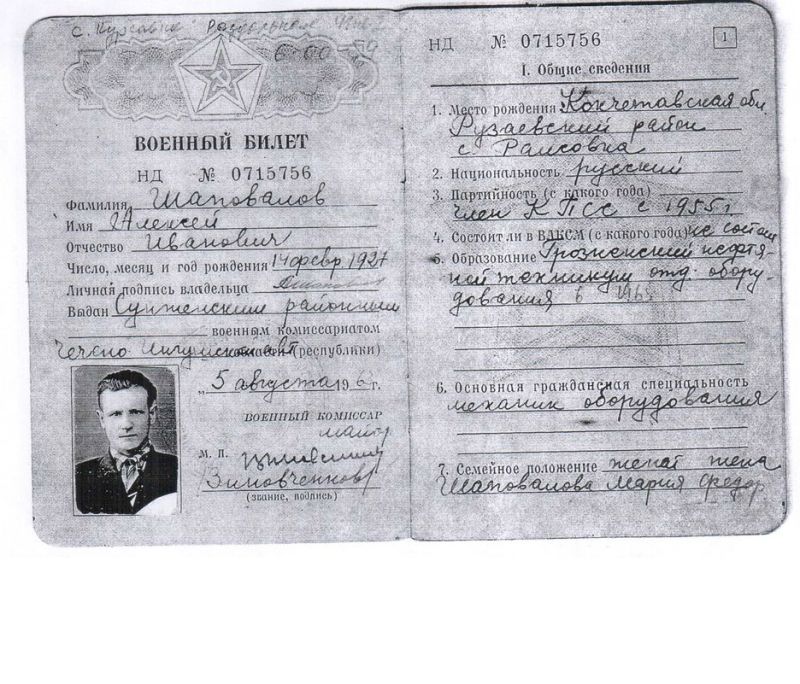 с. Курсавка Раздольная
6-00
ВОЕННЫЙ БИЛЕТ
НД № 0715756
Фамилия Шаповалов
Имя Алексей
Отчество Иванович
Число, месяц и год рождения 14 февр 1927
Личная подпись владельца
Выдан Сунженским районным
военным комиссариатом
Чечено Ингушской авт (республики)
„5 августа 196 г.
ВОЕННЫЙ КОМИССАР
майор
М. П.
Зимовченков
(звание, подпись)
НД № 0715756
1
I. Общие сведения
1. Место рождения Кокчетавская обл
Рузаевский район
с. Раисовка
2. Национальность русский
3. Партийность (с какого года)
член КПСС с 1955 г.
4. Состоит ли в ВЛКСМ (с какого года) не состоит
5. Образование Грозненский нефтя-
ной техникум отд. обору-
дования в 1965
6. Основная гражданская специальность
механик оборудования
7. Семейное положение женат жена
Шаповалова Мария Федор